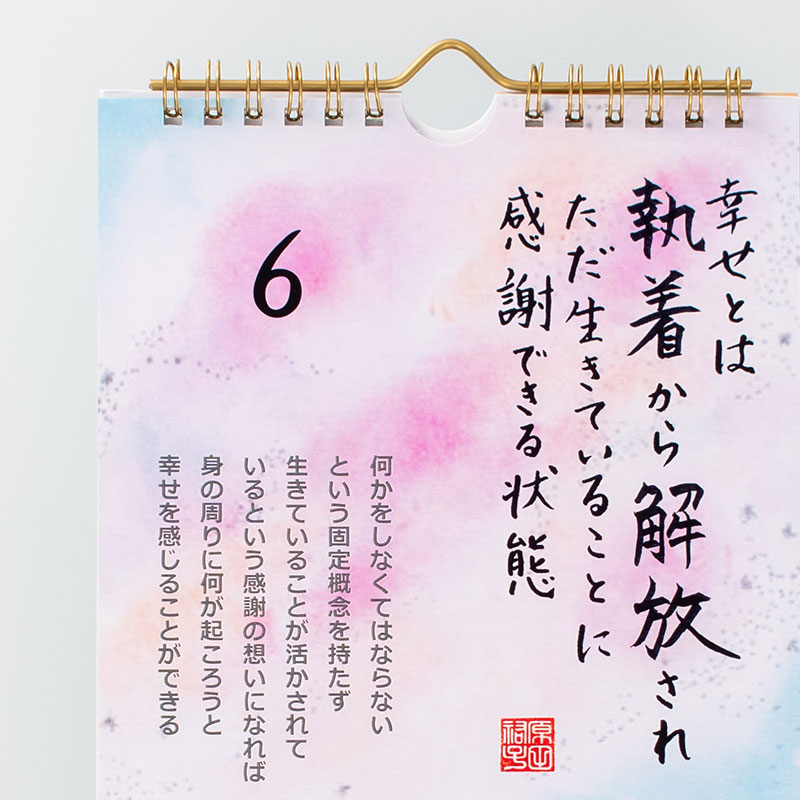 幸せとは
執着から解放され
ただ生きていることに
感謝できる状態
6
何かをしなくてはならない
という固定概念を持たず
生きていることが活かされて
いるという感謝の想いになれば
身の周りに何が起ころうと
幸せを感じることができる